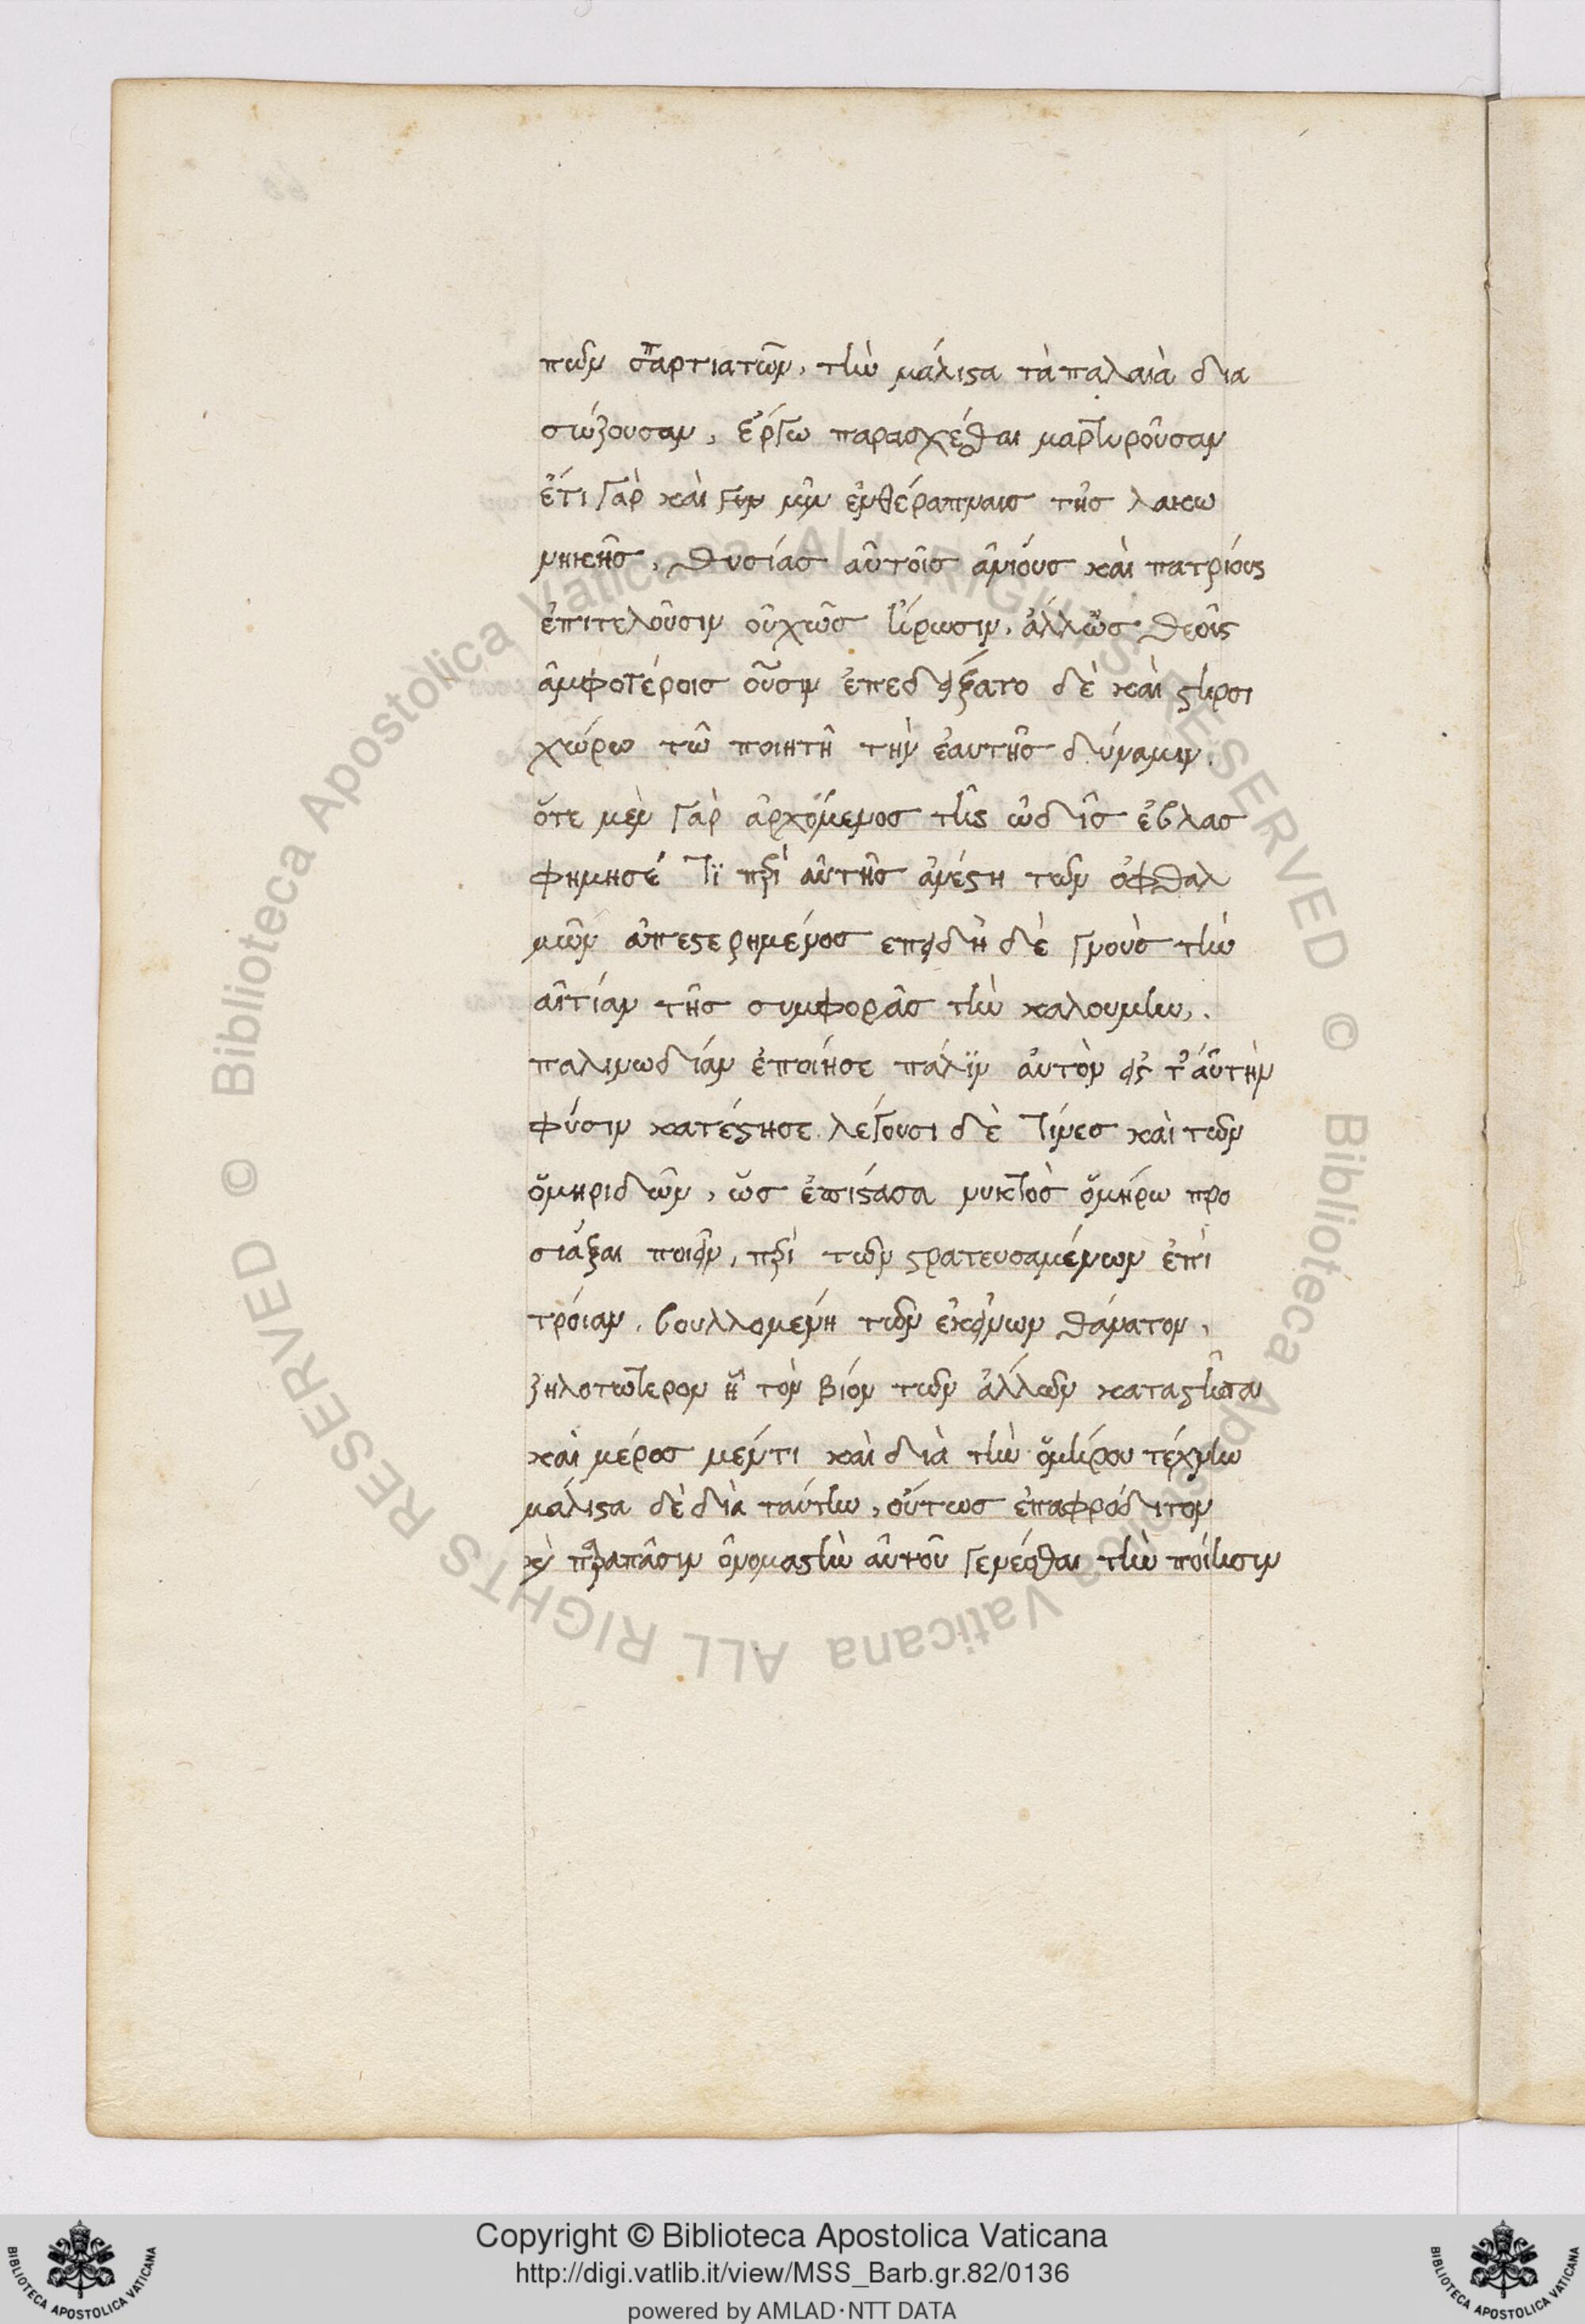 πων σπαρτιατῶν, τὴν μάλιστα τὰ παλαιὰ δια
σώζουσαν, ἔργω παρασχέσθαι μαρτυροῦσαν
ἔτι γὰρ καὶ νῦν ἐν θεράπναισ τῆσ λακω
νηκῆσ, θυσίασ αὐτοῖσ ἁγίουσ καὶ πατρίους
ἐπιτελοῦσιν οὐχ ὡσ ἥρωσιν, ἀλλ' ὡσ θεοῖς
ἀμφοτέροισ οὖσιν ἐπεδείξατο δὲ καὶ στησι
χώρω τῶ ποιητῆ τὴν ἑαυτῆσ δύναμιν.
ὅτε μὲν γὰρ ἀρχόμενοσ τῆς ὠδῆσ ἐβλασ
φημησέ τϊ περὶ αὐτῆσ ἀνέστη τῶν ὀφθαλ
μῶν ἀπεστερημένοσ επειδὴ δὲ γνοὺσ τὴν
αἰτίαν τῆσ συμφορᾶσ τὴν καλουμένην,.
παλινωδίαν ἐποίησε πάλϊν αὐτὸν εἰς τ' αὐτὴν
φύσιν κατέστησε. λέγουσι δὲ τίνεσ καὶ τῶν
ὁμηριδῶν, ὡσ ἐπιστάσα νυκτὸσ ὁμήρω προ
στάξαι ποιεῖν, περὶ τῶν στρατευσαμένων ἐπὶ
τρόιαν, βουλλομένη τῶν ἐκείνων θάνατον,
ζηλοτώτερον ἢ τὸν βίον τῶν ἀλλων καταστῆσαι
καὶ μέροσ μέντι καὶ διὰ τὴν ὁμήρου τέχνην
μάλιστα δὲ διὰ ταύτην, οὕτωσ ἐπαφρόδιτον
καὶ παραπᾶσιν ὀνομαστὴν αὐτοῦ γενέσθαι τὴν ποίησιν
Copyright © Biblioteca Apostolica Vaticana
http://digi.vatlib.it/view/MSS_Barb.gr.82/0136
powered by AMLAD·NTT DATA